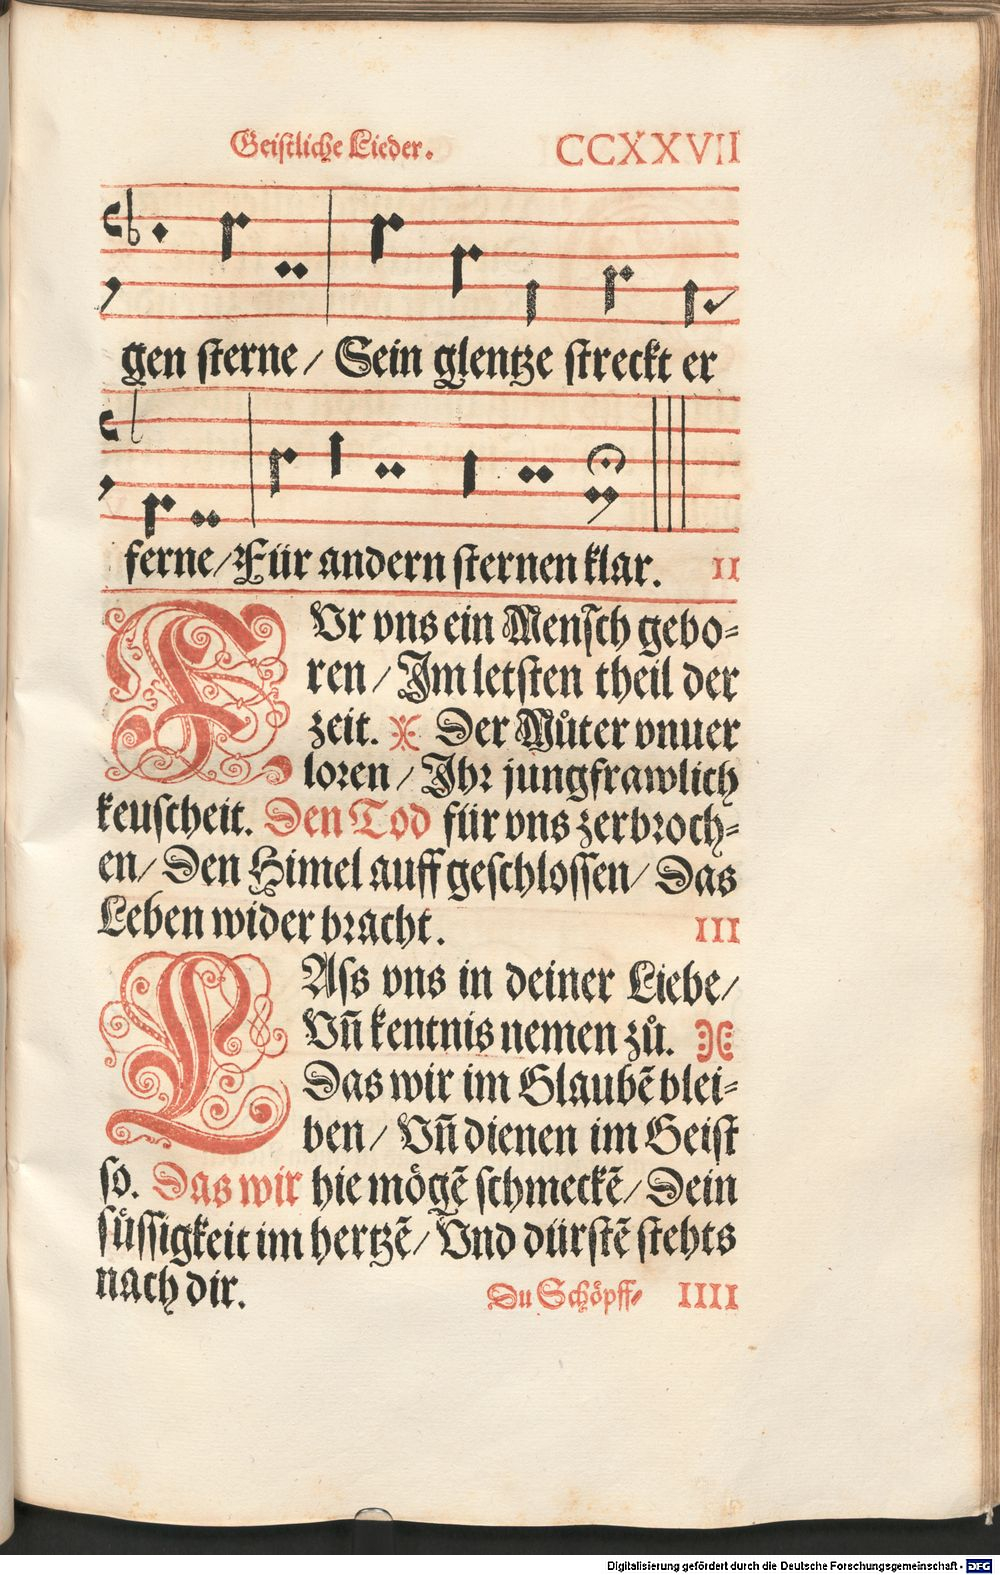 Geistliche Lieder. CCXXVII
gen sterne / Sein glentze streckt er
ferne / Für andern sternen klar. II
FVr vns ein Mensch gebo=
ren / Im letsten theil der
zeit. Der Můter vnuer
loren / Ihr jungfrawlich
keuscheit. Den Tod für vns zerbroch=
en / Den Himel auff geschlossen / Das
Leben wider bracht. III
LAss vns in deiner Liebe /
Vn̄ kentnis nemen zů.
Das wir im Glaubē blei=
ben / Vn̄ dienen im Geist
so. Das wir hie mögē schmeckē / Dein
sůssigkeit im hertzē / Vnd dürstē stehts
nach dir. Du Schöpff= IIII
Digitalisierung gefördert durch die Deutsche Forschungsgemeinschaft - DFG